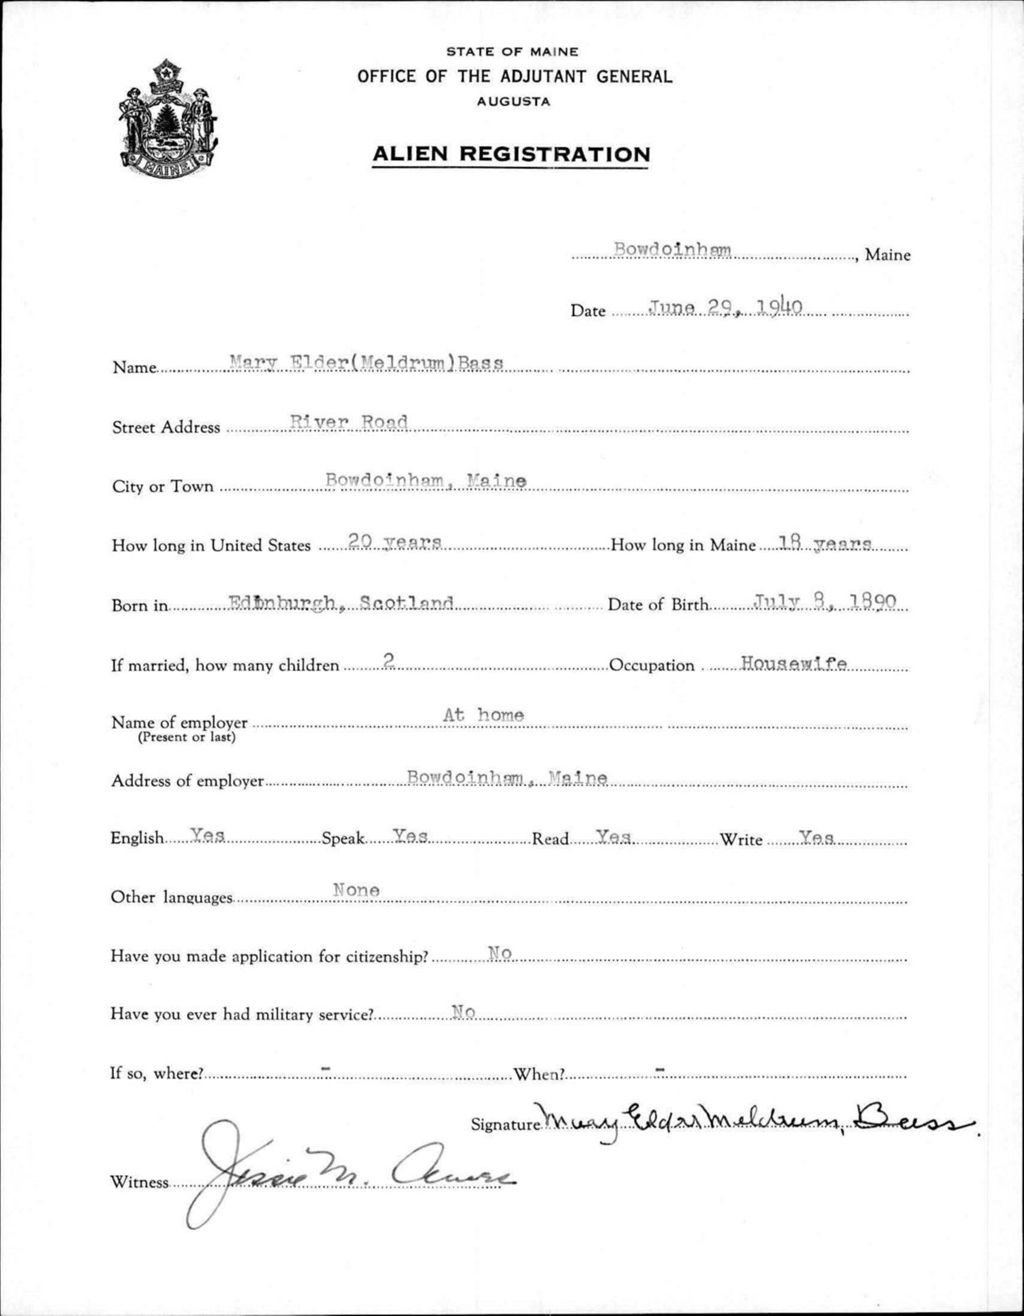 STATE OF MAINE
OFFICE OF THE ADJUTANT GENERAL
AUGUSTA
ALIEN REGISTRATION
MAINE
Bowdoinham, Maine
Date June 29, 1940
Name Mary Elder(Meldrum)Bass
Street Address River Road
City or Town Bowdoinham, Maine
How long in United States 20 years How long in Maine 18 years
Born in Edinburgh, Scotland Date of Birth July 8, 1890
If married, how many children 2 Occupation Housewife
Name of employer At home
(Present or last)
Address of employer Bowdoinham, Maine
English Yes Speak Yes Read Yes Write Yes
Other languages None
Have you made application for citizenship? No
Have you ever had military service? No
If so, where? - When? -
Signature Mary Elder Meldrum, Bass.
Witness Jessie M.